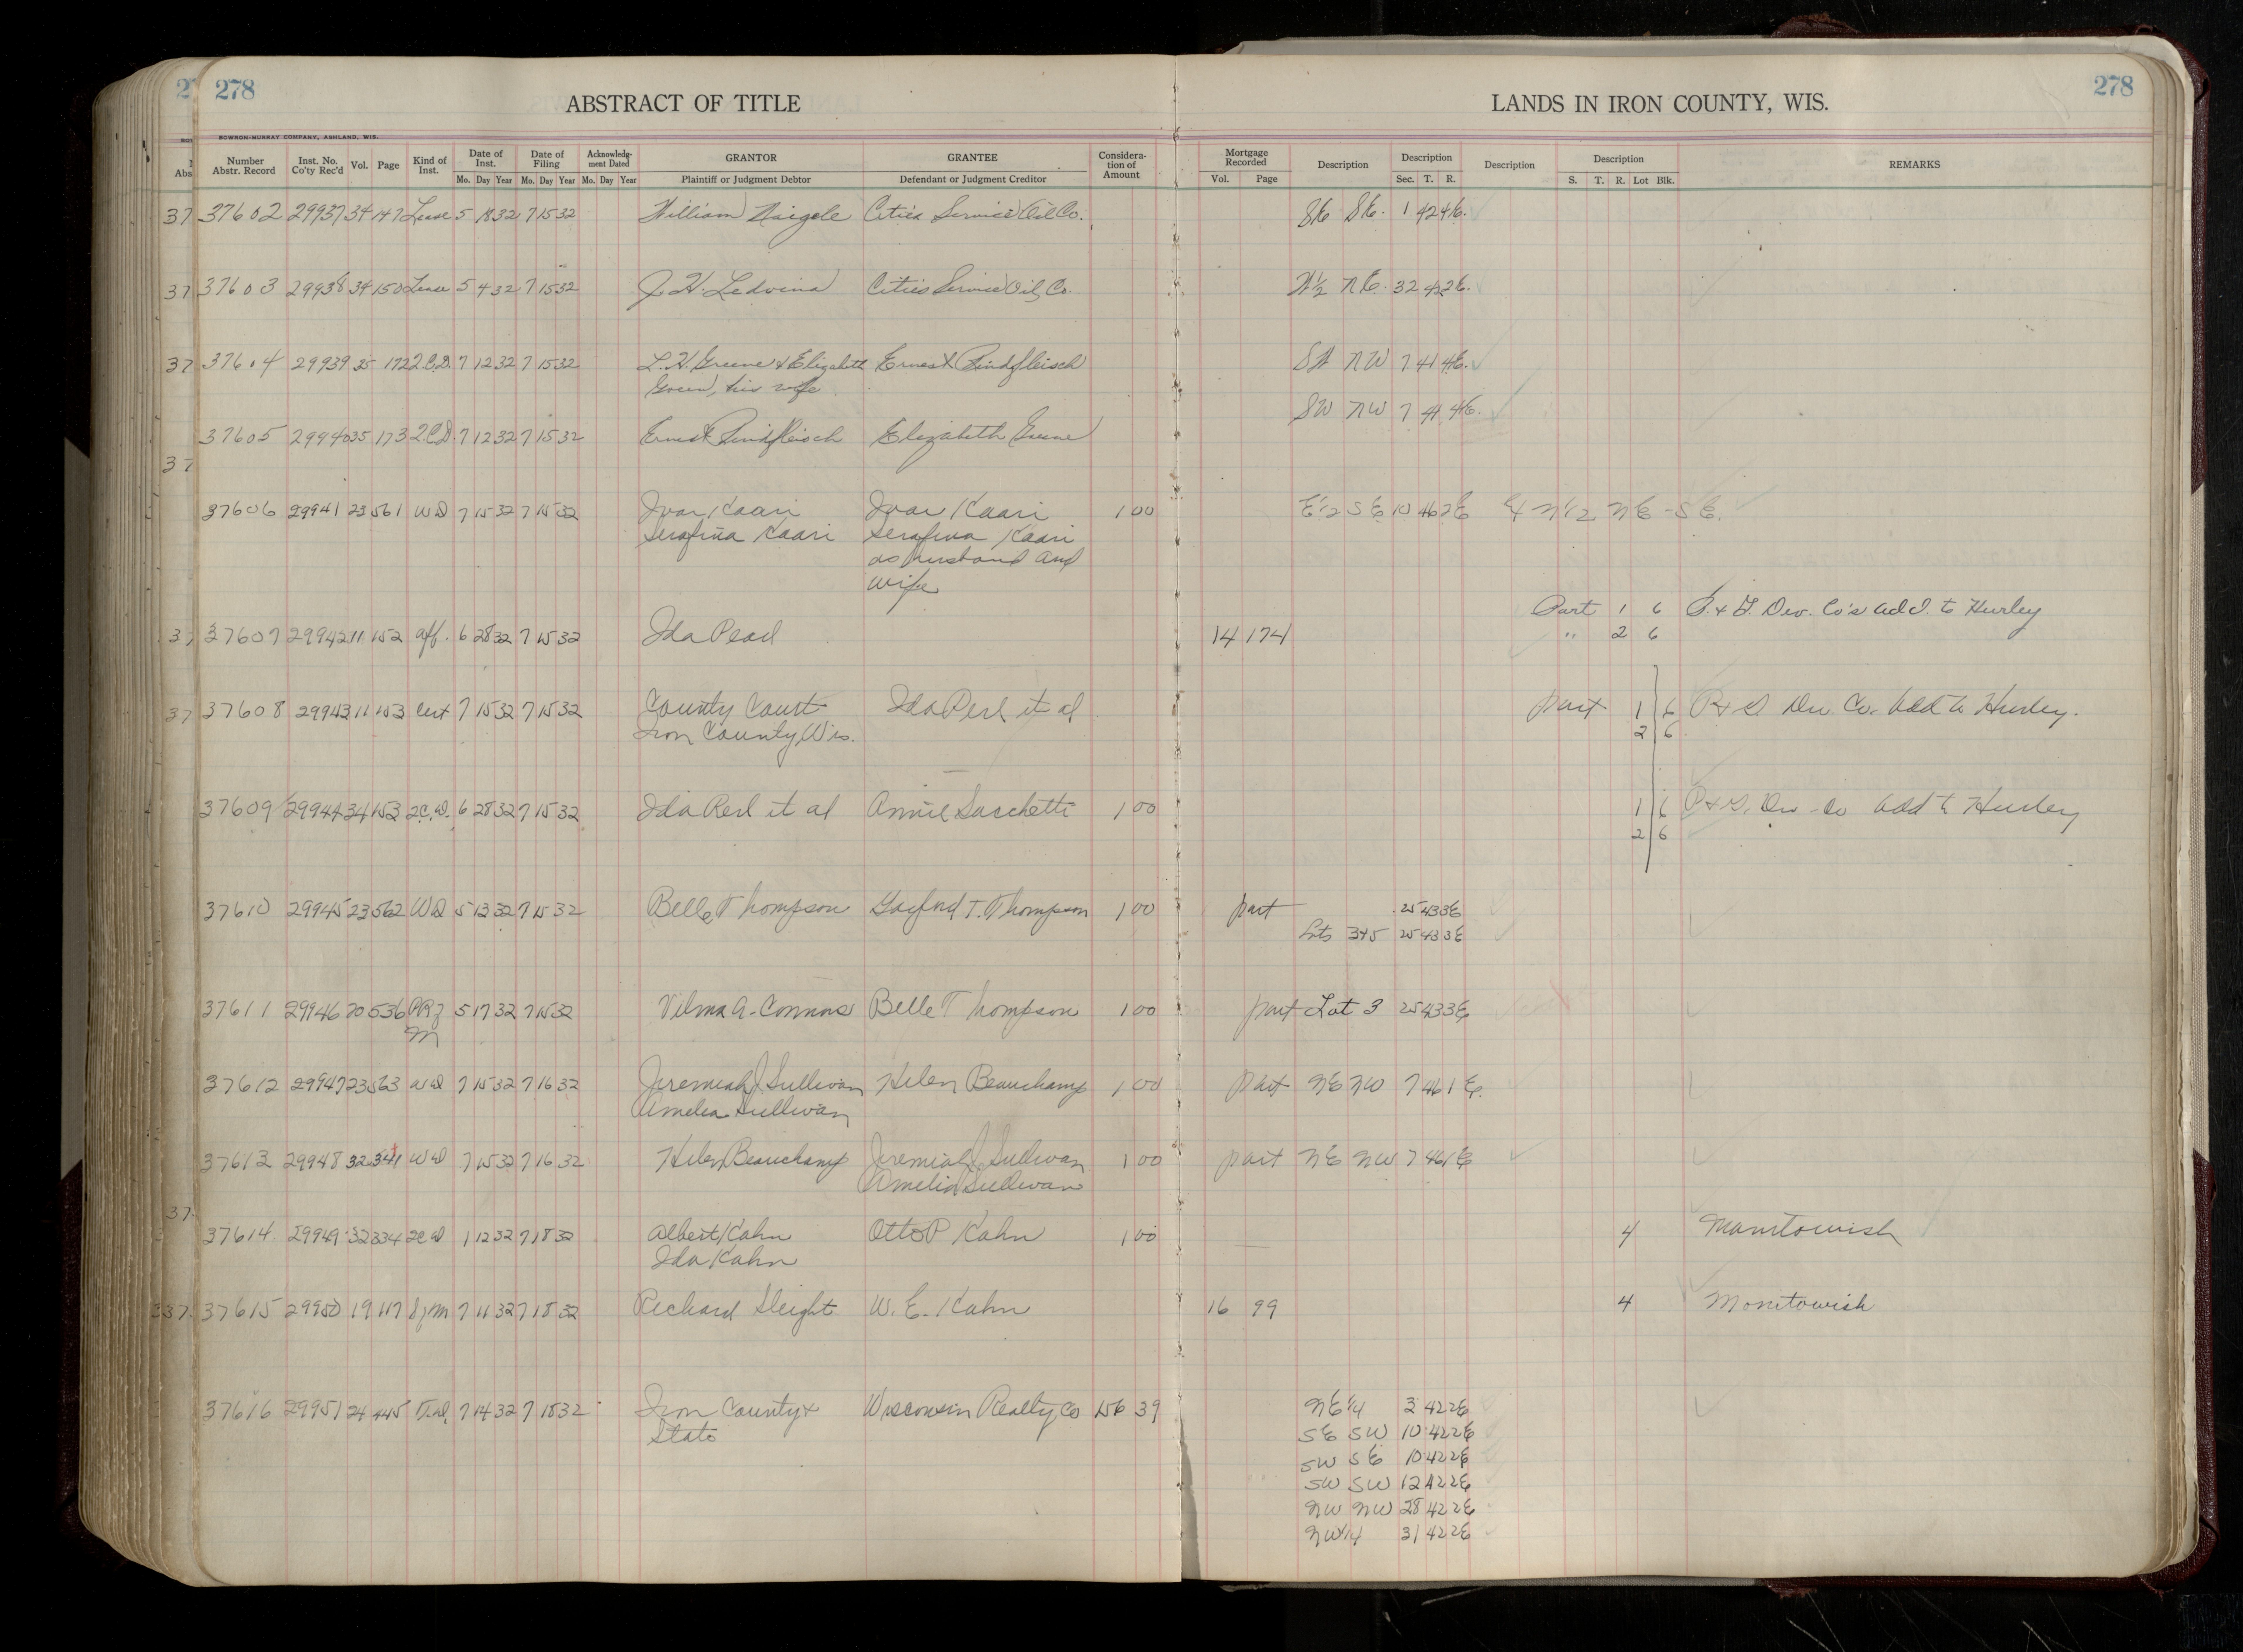 278
278
ABSTRACT OF TITLE
LANDS IN IRON COUNTY, WIS.
BOWRON-MURRAY COMPANY, ASHLAND, WIS.
Number Abstr. Record Inst. No. Co'ty Rec'd Vol. Page Kind of Inst. Date of Inst. Mo. Day Year Date of Filing Mo. Day Year Acknowledgment Dated Mo. Day Year GRANTOR Plaintiff or Judgment Debtor GRANTEE Defendant or Judgment Creditor Consideration of Amount Mortgage Recorded Vol. Page Description Description Sec. T. R. Description Description S. T. R. Lot Blk. REMARKS
37602 29937 34 147 Lease 5 32 7 15 32 William Naigele Cities Service Oil Co. SE SE. 1 42 4E.
37603 29938 34 150 Lease 5 4 32 7 15 32 J. H. Ledvina Cities Service Oil Co. NE. 32 42 2E.
37604 29939 35 172 2.C.D. 7 12 32 7 15 32 L. H. Greene & Elizabeth Ernest Rindfleisch NW 7 41 4E.
Green, his wife
SW NW 7 41 4E.
37605 29940 35 173 2.C.D. 7 12 32 7 15 32 Ernest Rindfleisch Elizabeth Greene
37606 29941 23 561 WD 7 15 32 7 15 32 Ivar Kaari Ivar Kaari 1 00 E 1/2 SE 10 46 2E N 1/2 NE - SE.
Serafina Kaari Serafina Kaari
as husband and
wife
Part 1 6 Dev. Co's add. to Hurley
37607 29942 11 152 aff. 6 28 32 7 15 32 Ida Pearl 14 174 " 2 6
37608 29943 11 153 Cert 7 15 32 7 15 32 County Court Ida Perl et al part 1 6 Dev Co. Add to Hurley.
Iron County, Wis. 2 6
37609 29944 34 153 2C.D. 6 28 32 7 15 32 Ida Perl et al Annie Sacchetti 1 00 1 6 Dev Co Add to Hurley
2 6
37610 29945 23 562 WD 5 13 32 7 15 32 Belle Thompson Gayford T. Thompson 1 00 part 25 43 3E
Lots 3+5 25 43 3E
37611 29946 20 536 5 17 32 7 15 32 Vilma A. Connors Belle Thompson 1 00 part Lot 3 25 43 3E
M
37612 29947 23 563 WD 7 15 32 7 16 32 Jeremiah J. Sullivan Helen Beauchamp 1 00 part NE NW 7 46 1E.
Amelia Sullivan
37613 29948 32 341 WD 7 15 32 7 16 32 Helen Beauchamp Jeremiah J. Sullivan 1 00 part NE NW 7 46 1E
Amelia Sullivan
37614 29949 32 334 2CD 1 12 32 7 18 32 Albert Kahn Otto P Kahn 1 00 4 Manitowish
Ida Kahn
37615 29950 19 117 7 11 32 7 18 32 Richard Sleight W. E. Kahn 16 99 4 Manitowish
37616 29951 24 445 T.D. 7 14 32 7 18 32 Iron County & Wisconsin Realty Co 156 39 NE 1/4 3 42 2E
State SE SW 10 42 2E
SW SE 10 42 2E
SW SW 12 42 2E
NW NW 28 42 2E
NW 1/4 31 42 2E